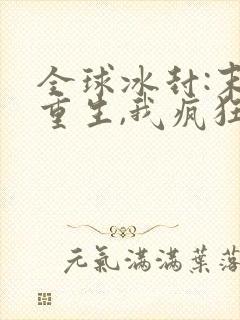 全球冰封:末
重生,我疯狂
元氣滿滿葉落